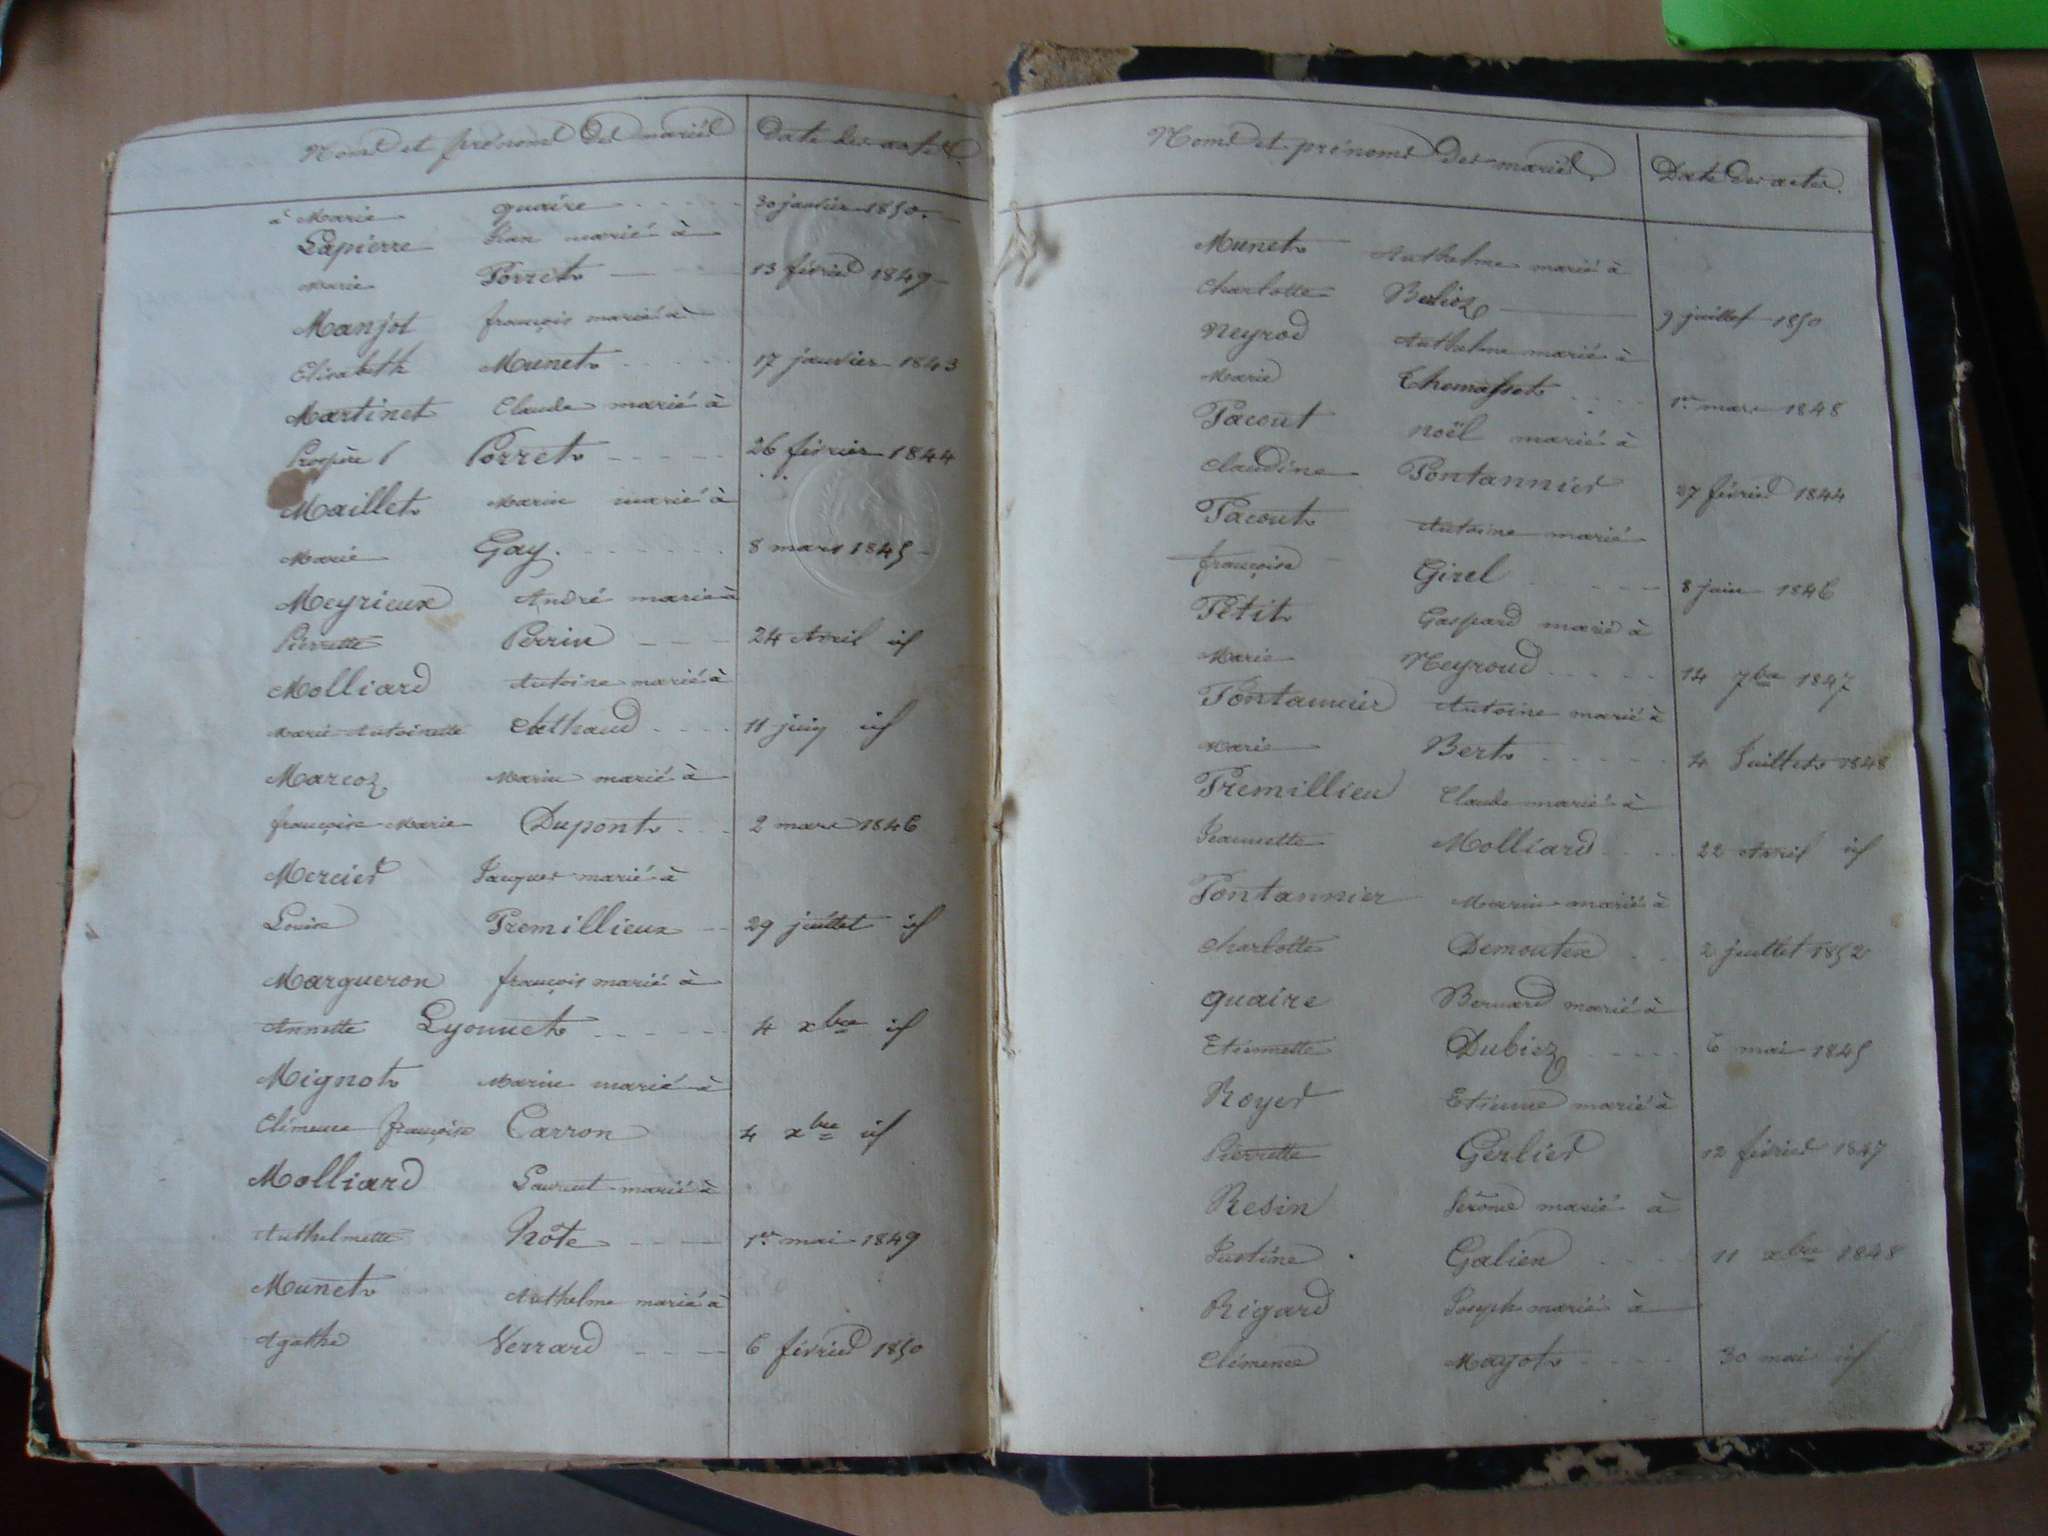 Noms et prénoms des mariés Date des actes
à Marie quaire 30 janvier 1850.
Lapierre Jean marié à
Marie Porret 13 février 1849
Manjot françois marié à
Elisabeth Munet 17 janvier 1843
Martinet Claude marié à
Prospère Porret 26 février 1844
Maillet Marin marié à
Marie Gay. 8 mars 1845
Meyrieux André marié à
Pierrette Perrin 24 Avril id
Molliard Antoine marié à
Marie Antoinette 11 juin id
Marcoz Marin marié à
françoise Marie Dupont 2 mars 1846
Mercier Jacques marié à
Louise Premillieux 29 juillet id
Margueron françois marié à
Annette Lyonnet 4 xbre id
Mignot Marin marié à
Clémence françoise Carron 4 xbre id
Molliard Laurent marié à
Anthelmette hôte 1er mai 1849
Munet Anthelme marié à
Agathe Verrard 6 février 1850
Noms et prénoms des mariés. Date des actes.
Munet Anthelme marié à
Charlotte Belioz 9 juillet 1850
Neyrod Anthelme marié à
Marie Thomasset 1er mars 1848
Pacout noël marié à
Claudine Pontannier 27 février 1844
Pacout Antoine marié
françoise Girel 8 juin 1846
Petit Gaspard marié à
Marie Neyroud 14 7bre 1847
Pontannier Antoine marié à
Marie Bert 4 Juillet 1848
Premillieu Claude marié à
Jeannette Molliard 22 Avril id
Pontannier Marin marié à
Charlotte Demoutex 2 juillet 1852
quaire Bernard marié à
Etiennette Dubiez 6 mai 1845
Royer Etienne marié à
Pierrette Gerlier 12 février 1847
Resin Jérôme marié à
Justine Galien 11 xbre 1848
Rigard Joseph marié à
Clémence Mayot 30 mai id